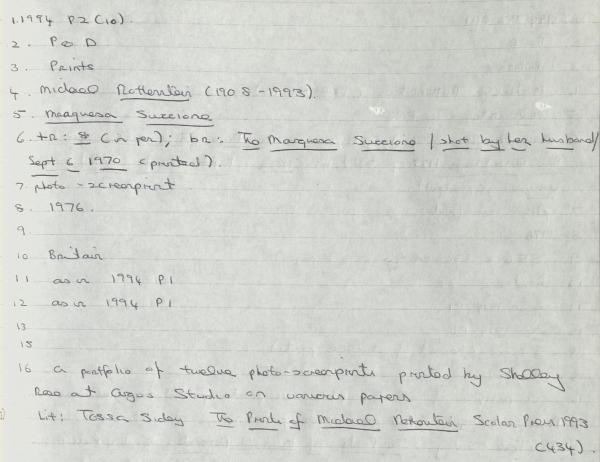 1. 1994 P2 (10).
2. P & D
3. Prints
4. Michael Rothenstein (1908-1993).
5. Marquesa Succiona
6. tr: 8 (in pen); br: The Marquesa Succiona / shot by her husband/
Sept 6 1970 (printed).
7. photo-screenprint
8. 1976.
9
10 Britain
11 as in 1994 P1
12 as in 1994 P1
13
15
16 a portfolio of twelve photo-screenprints printed by Shelley
Rose at Argus Studio on various papers
Lit: Tessa Sidey The Prints of Michael Rothenstein Scolar Press 1993
(434).